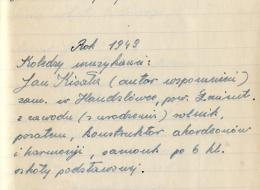 Rok 1949
Koledzy muzykanci:
Jan Kisała (autor wspomnień)
zam. w Handzlówce, pow. Łańcut.
z zawodu (z urodzenia) rolnik,
pozatem, konstruktor akordeonów
i harmonji, samouk po 6 kl.
szkoły podstawowej.